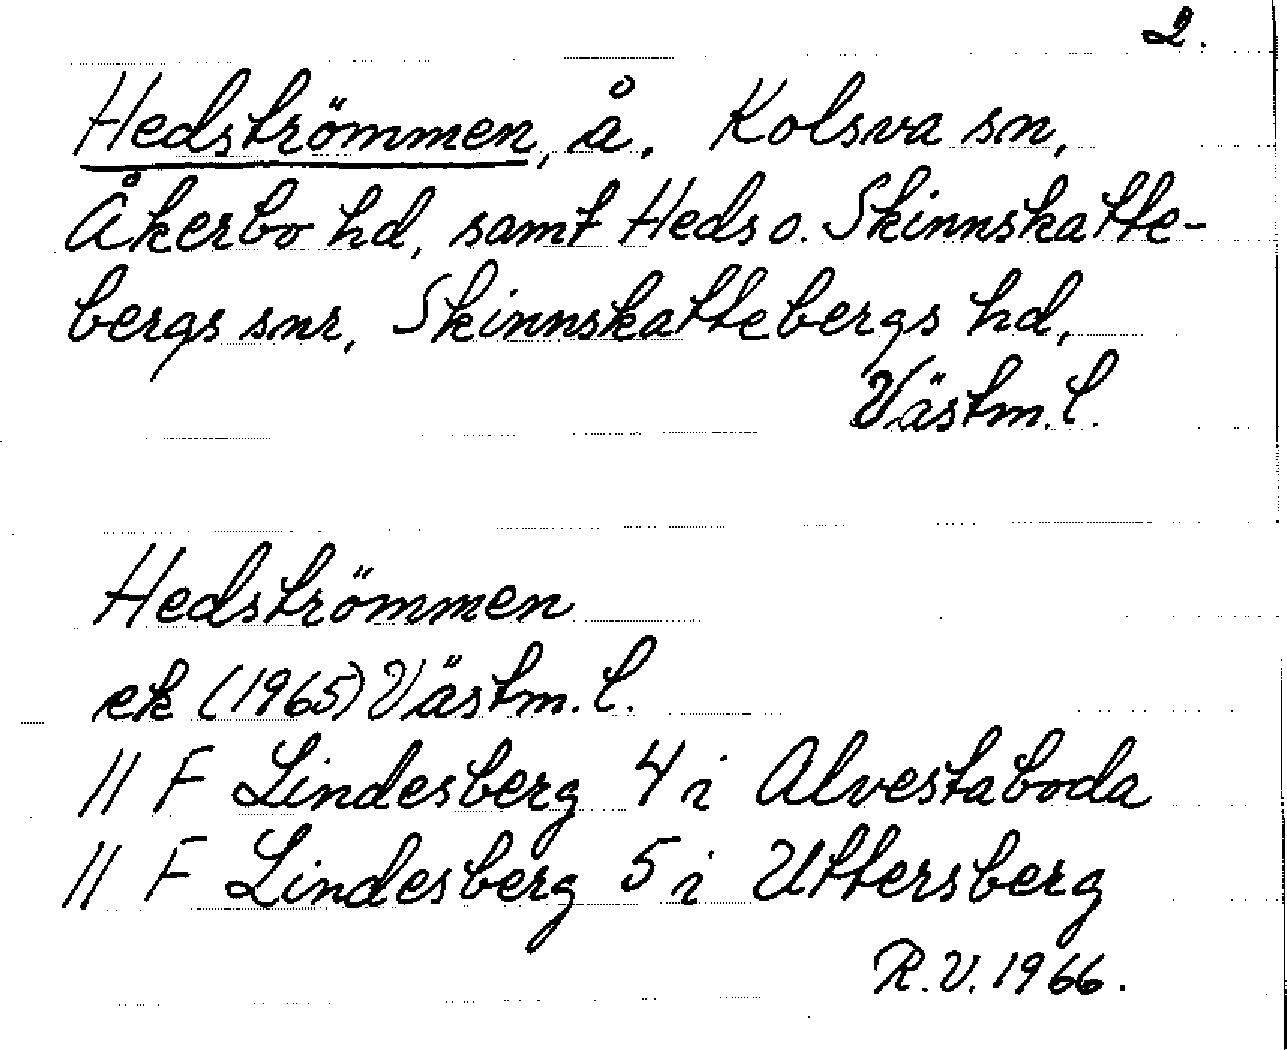 2.
Hedströmmen, å. Kolsva sn,
Åkerbo hd, samt Heds o. Skinnskatte-
bergs snr, Skinnskattebergs hd,
Västm. l.
Hedströmmen
ek (1965) Västm. l.
11 F Lindesberg 4 i Alvestaboda
11 F Lindesberg 5 i Uttersberg
R.V. 1966.